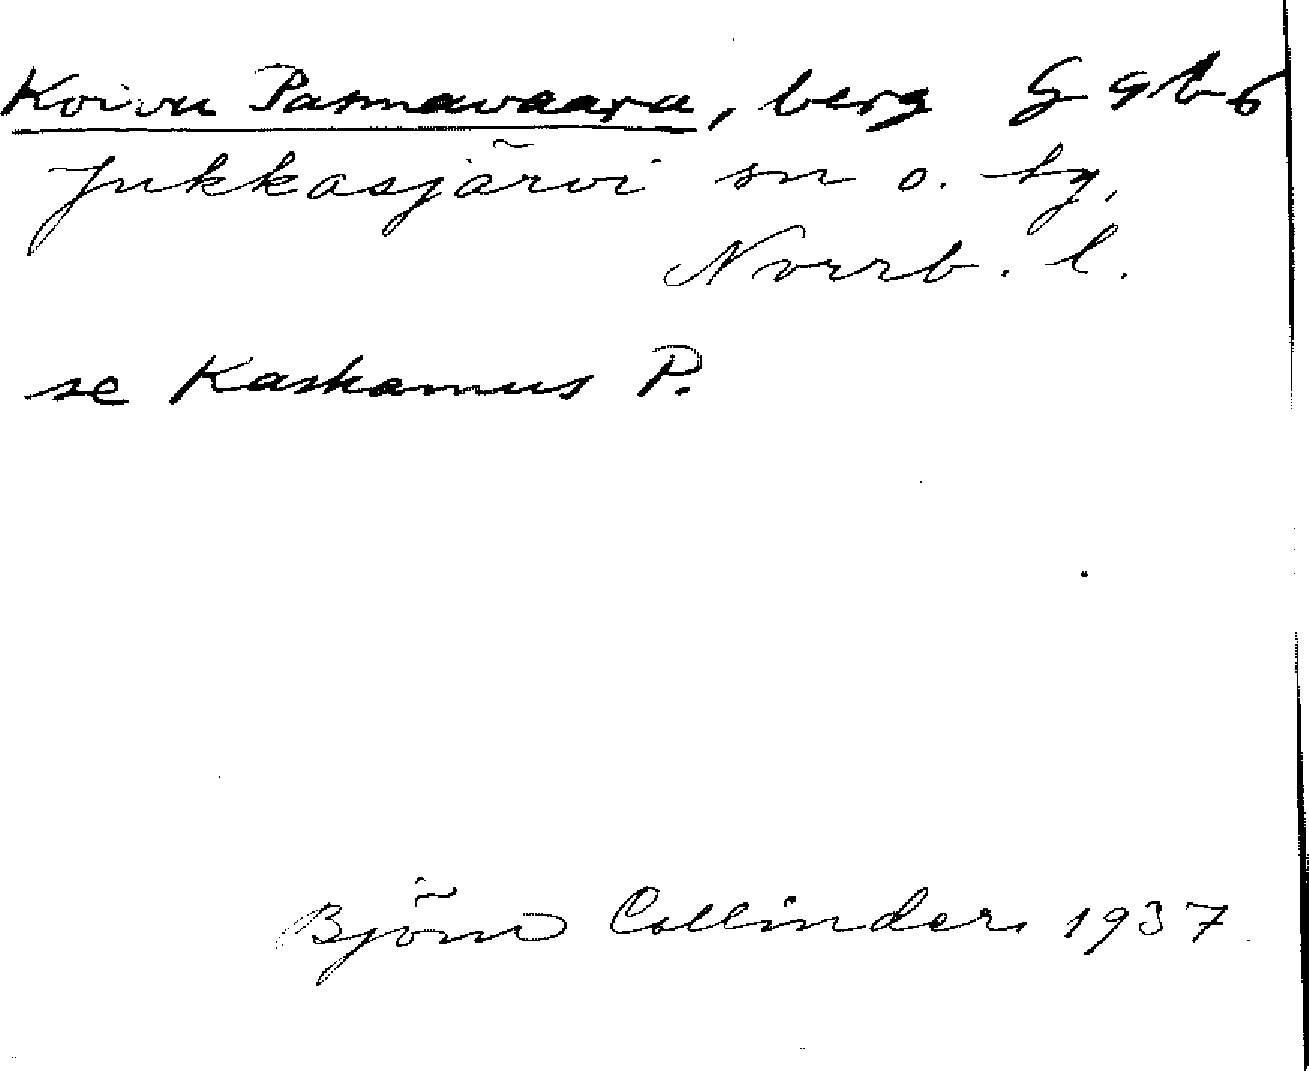 Koivu Pasmavaara, berg G 9 b 6
Jukkasjärvi sn o. tg,
Norrb. l.
se Kaskamus P.
Björn Collinder 1937